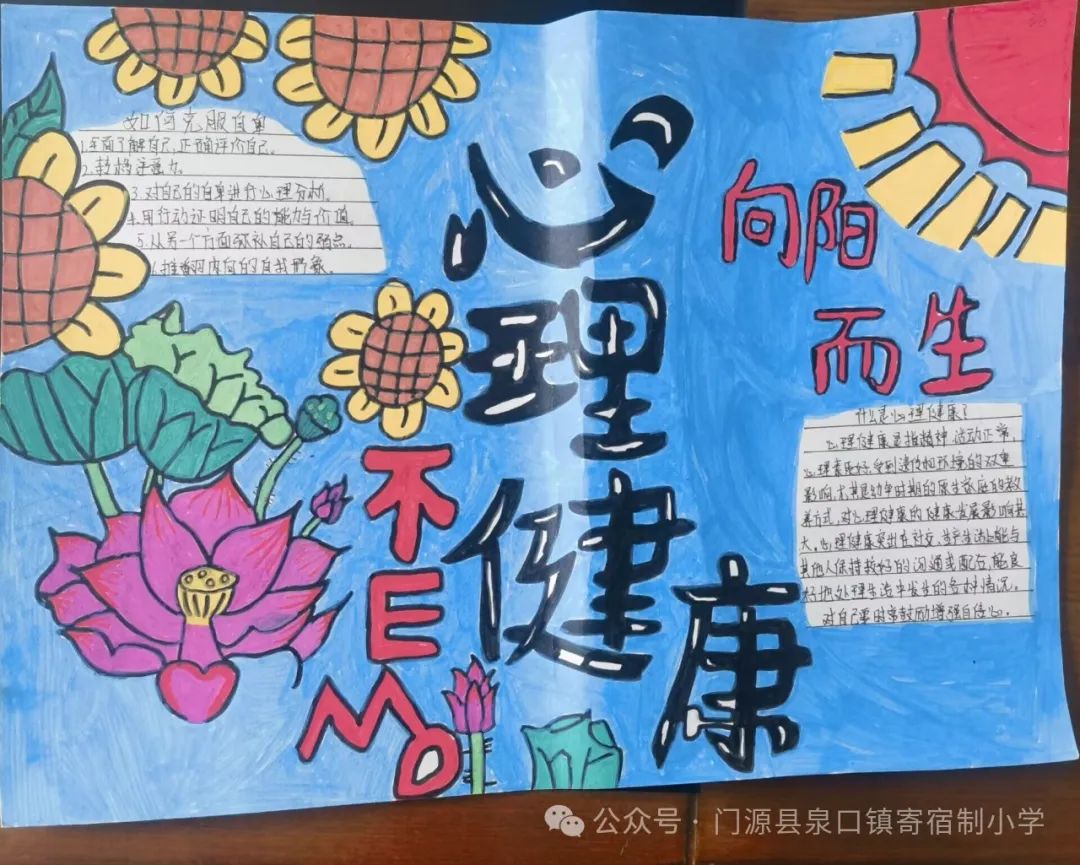 如何克服自卑
1.全面了解自己,正确评价自己。
2.转移注意力。
3.对自己的自卑进行心理分析。
4.用行动证明自己的能力与价值。
5.从另一个方面弥补自己的弱点。
的自我形象。
心理健康
向阳
而生
不EMO
什么是心理健康?
心理健康是指精神、活动正常、
心理素质好,受到遗传和环境的双重
影响,尤其是幼年时期的原生家庭的教
养方式,对心理健康的健康发展影响甚
大。心理健康突出在社交、生产、生活上能与
其他人保持较好的沟通或配合,能良
好地处理生活中发生的各种情况。
对自己要时常鼓励增强自信心。
公众号·门源县泉口镇寄宿制小学